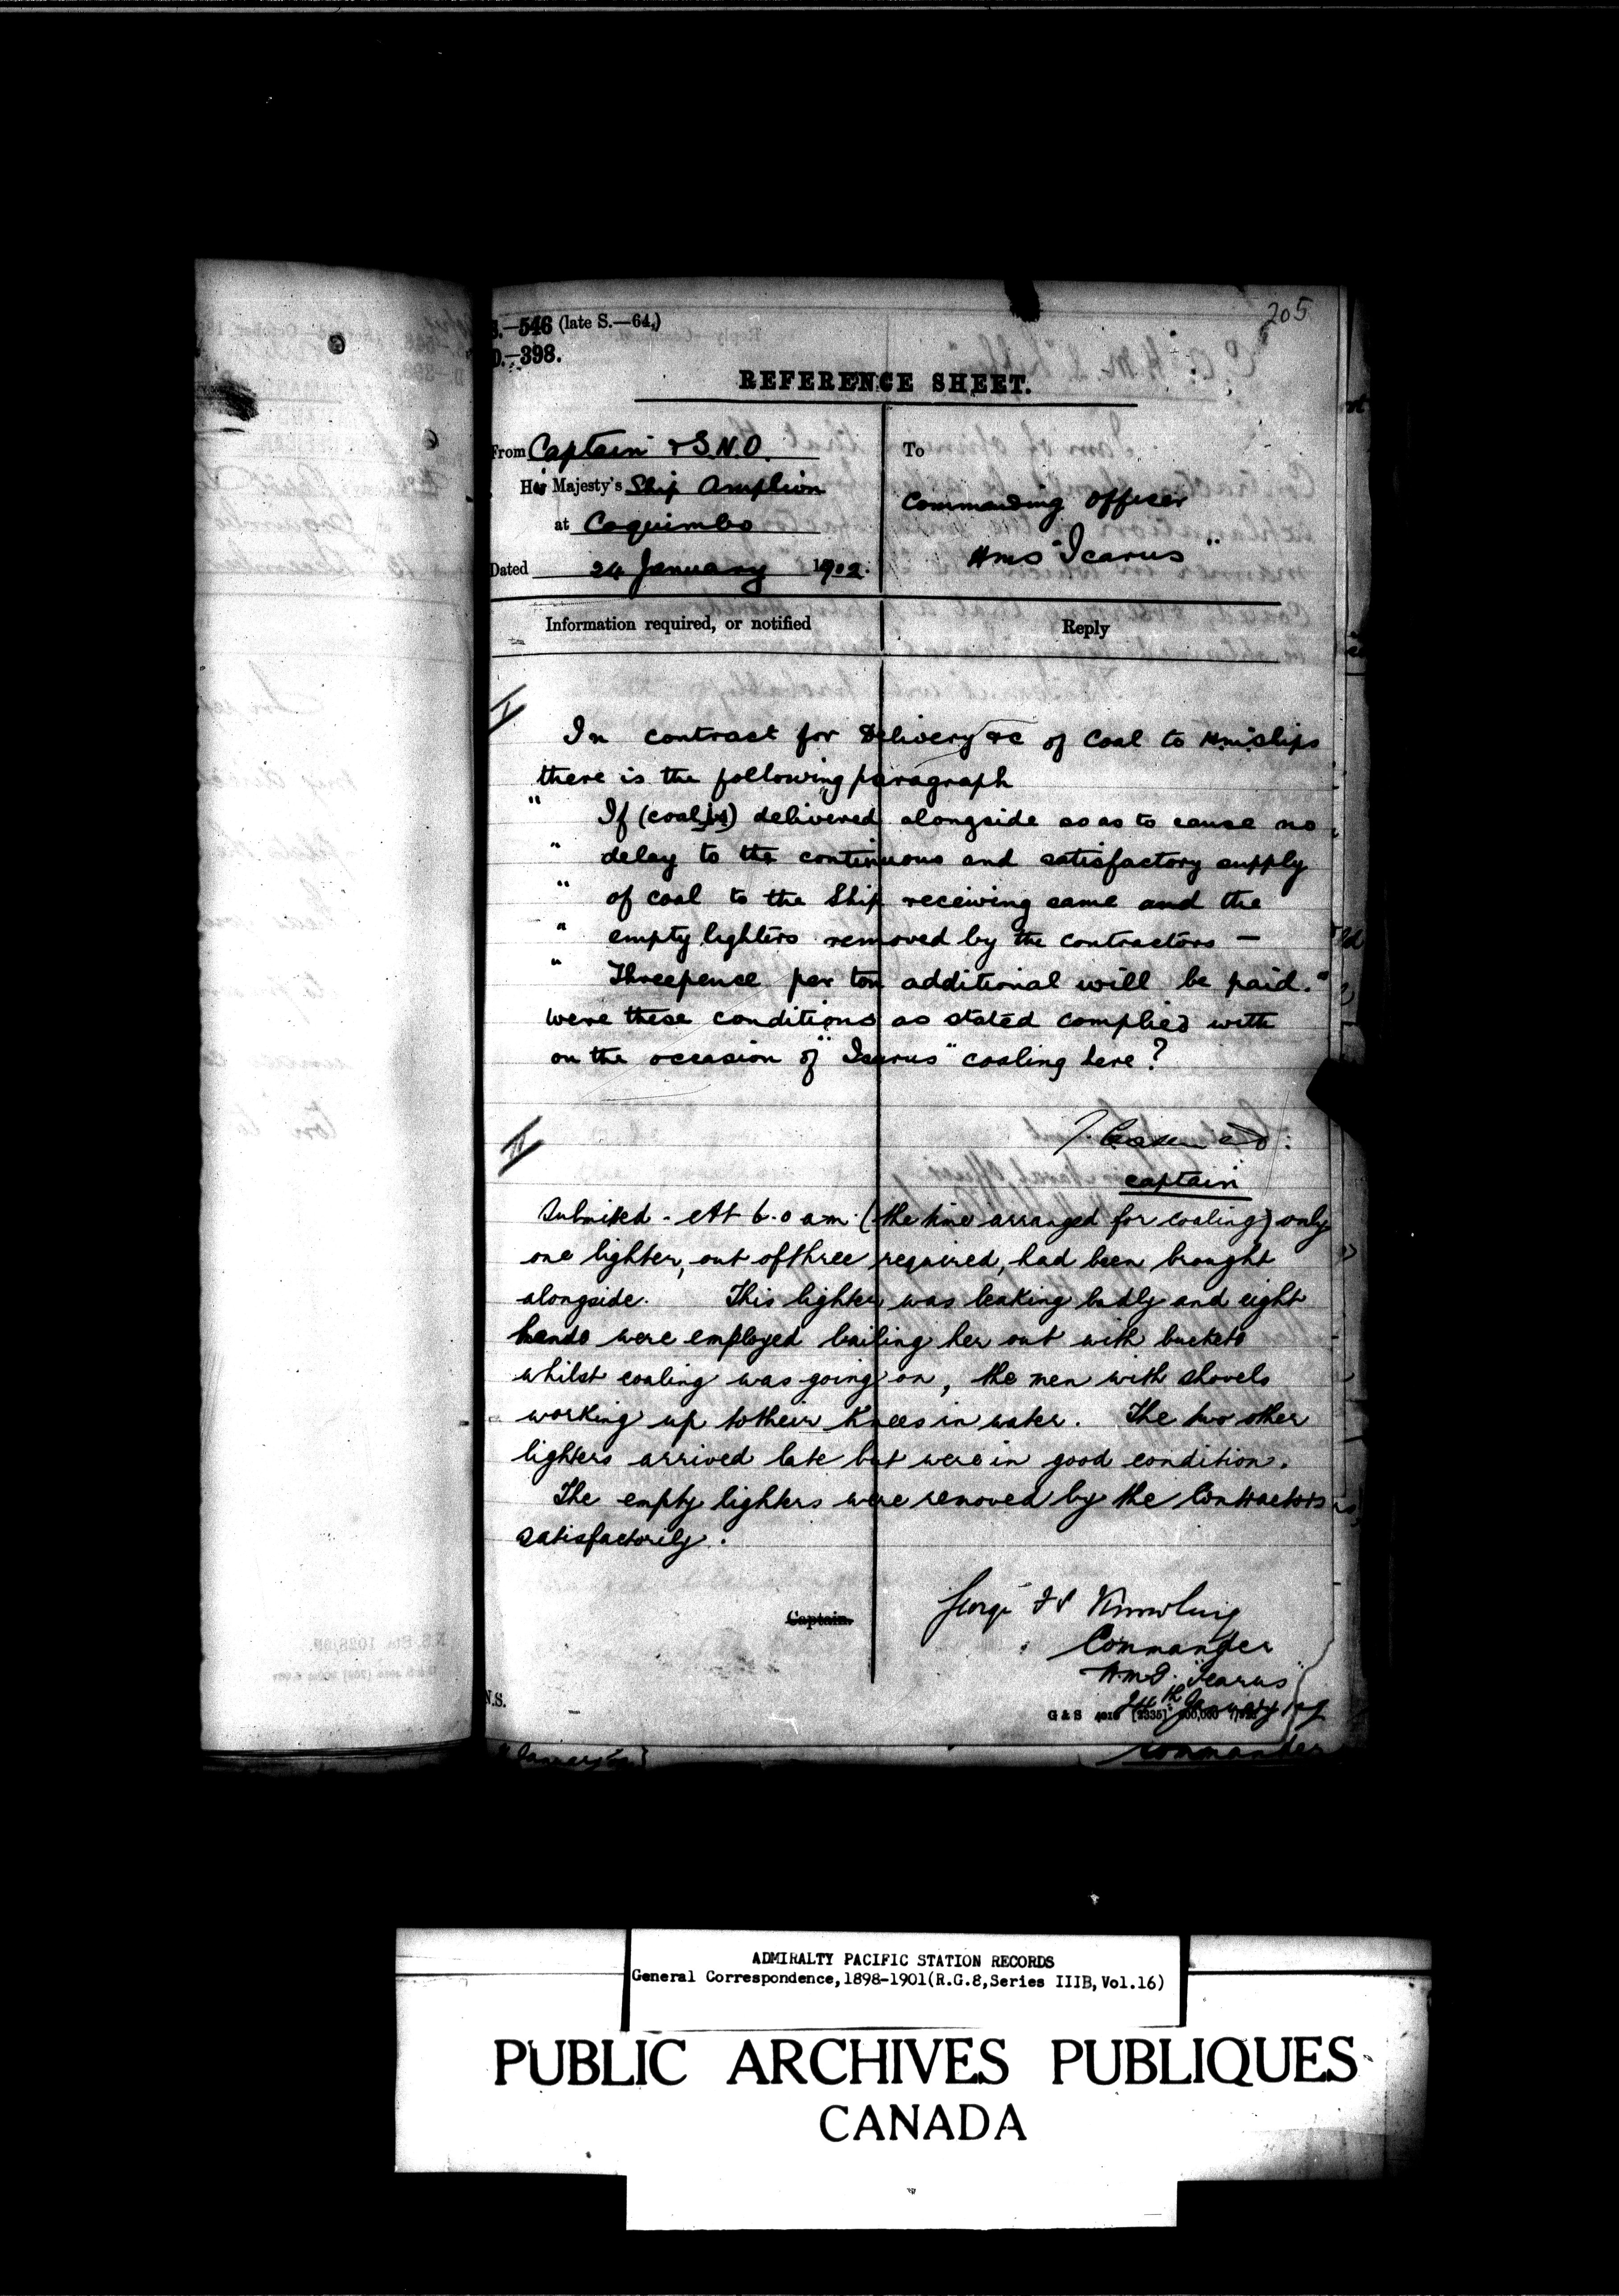 205
S.—546 (late S.—64.)
D.—398.
REFERENCE SHEET.
From Captain & S.N.O.
His Majesty's Ship Amphion
at Coquimbo
Dated 24 January 1902.
To
Commanding Officer
HMS "Icarus"
Information required, or notified
Reply
I
In contract for Delivery &c of Coal to HM Ships
there is the following paragraph
" If (coal is) delivered alongside so as to cause no
" delay to the continuous and satisfactory supply
" of coal to the Ship receiving same and the
" empty lighters removed by the contractors —
" Threepence per ton additional will be paid."
were these conditions as stated complied with
on the occasion of "Icarus" coaling here?
captain
II
Submitted - At 6.0 a.m. (the time arranged for coaling) only
one lighter, out of three required, had been brought
alongside. This lighter was leaking badly and eight
hands were employed bailing her out with buckets
whilst coaling was going on, the men with shovels
working up to their knees in water. The two other
lighters arrived late but were in good condition.
The empty lighters were removed by the Contractors
satisfactorily.
Captain.
George
Commander
H.M.S. "Icarus"
24th January
N.S.
G & S
Commander
ADMIRALTY PACIFIC STATION RECORDS
General Correspondence,1898-1901(R.G.8,Series IIIB,Vol.16)
PUBLIC ARCHIVES PUBLIQUES
CANADA